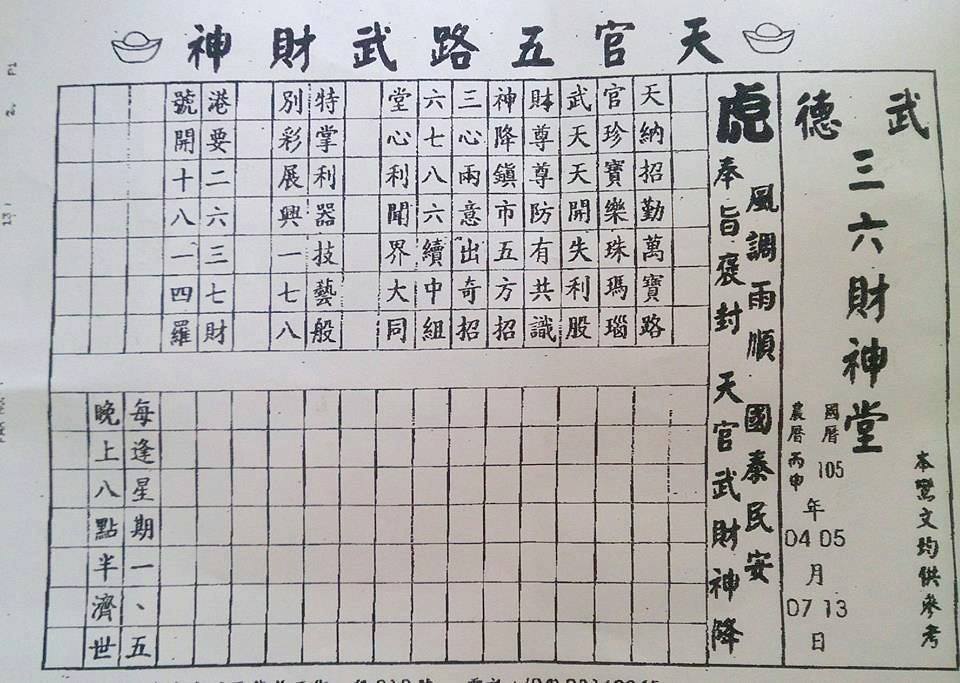 天官五路武財神
武德
三六財神堂
本鸞文均供參考
國曆 105 年 05 月 13 日
農曆 丙申 年 04 月 07 日
虎
風調雨順 國泰民安
奉旨褒封 天官武財神降
天納招勤萬寶路
官珍寶樂珠瑪瑙
武天天開失利股
財尊尊防有共識
神降鎮市五方招
三心兩意出奇招
六七八六續中組
堂心利聞界大同
特掌利器技藝般
別彩展興一七八
港要二六三七財
號開十八一四羅
每逢星期一、五
晚上八點半濟世